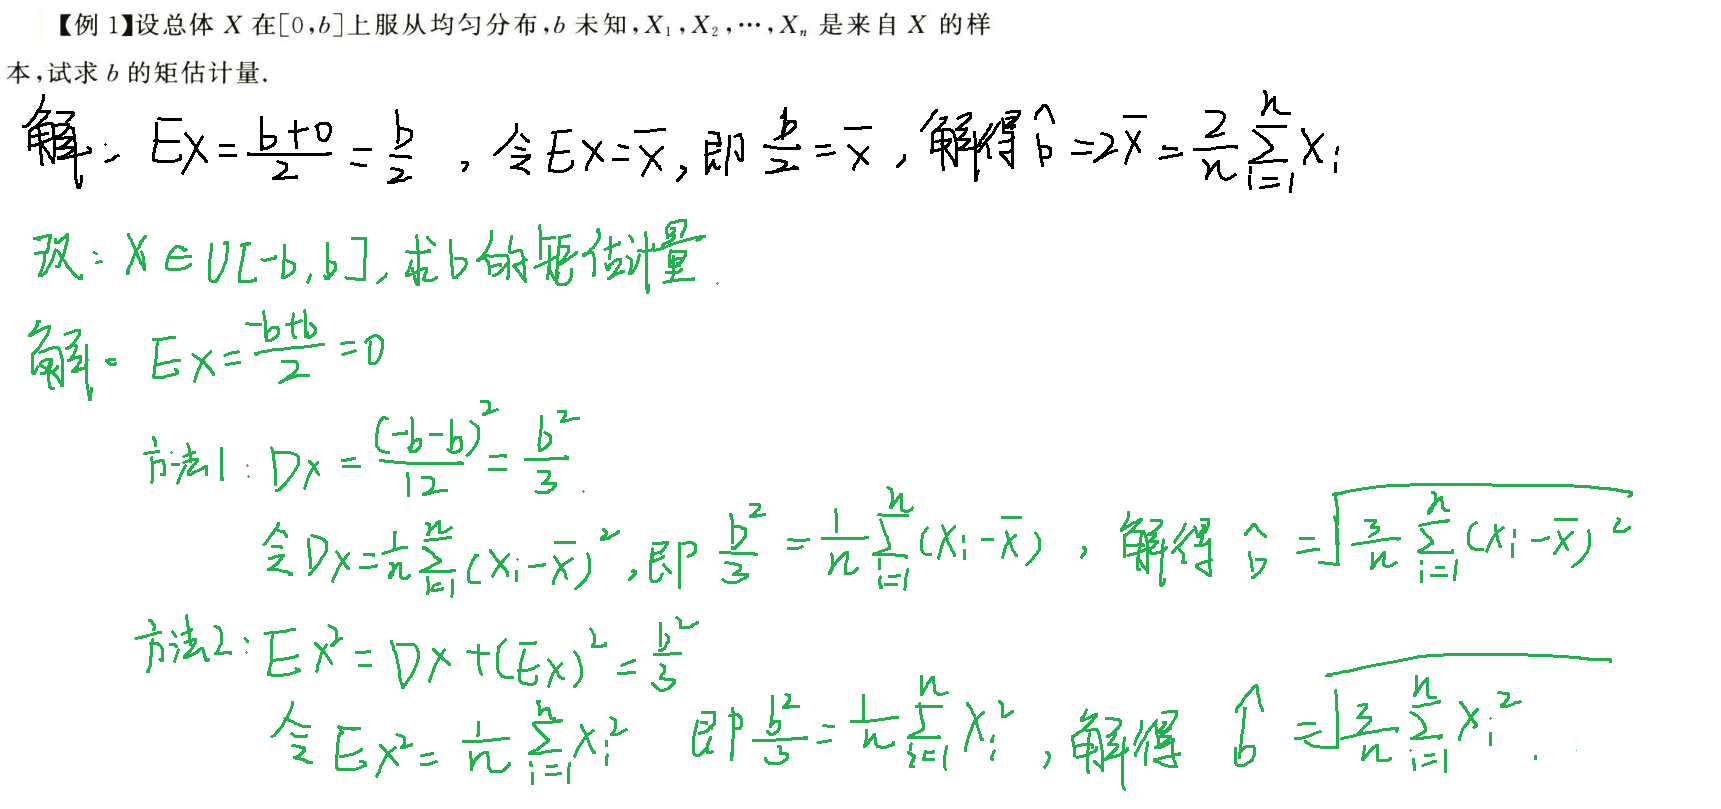 【例 1】设总体 X 在[0,b]上服从均匀分布,b 未知,X₁,X₂,⋯,Xₙ 是来自 X 的样
本,试求 b 的矩估计量.
解: EX = (b+0)/2 = b/2 , 令 EX = X̄, 即 b/2 = X̄ , 解得 b̂ = 2X̄ = (2/n) ∑_{i=1}^{n} Xᵢ
改: X ∈ U[-b,b], 求b的矩估计量.
解: EX = (-b+b)/2 = 0
方法1: DX = (-b-b)²/12 = b²/3.
令 DX = (1/n) ∑_{i=1}^{n} (Xᵢ-X̄)², 即 b²/3 = (1/n) ∑_{i=1}^{n} (Xᵢ-X̄) , 解得 b̂ = √((3/n) ∑_{i=1}^{n} (Xᵢ-X̄)²)
方法2: EX² = DX + (EX)² = b²/3
令 EX² = (1/n) ∑_{i=1}^{n} Xᵢ² 即 b²/3 = (1/n) ∑_{i=1}^{n} Xᵢ² , 解得 b̂ = √((3/n) ∑_{i=1}^{n} Xᵢ²) .